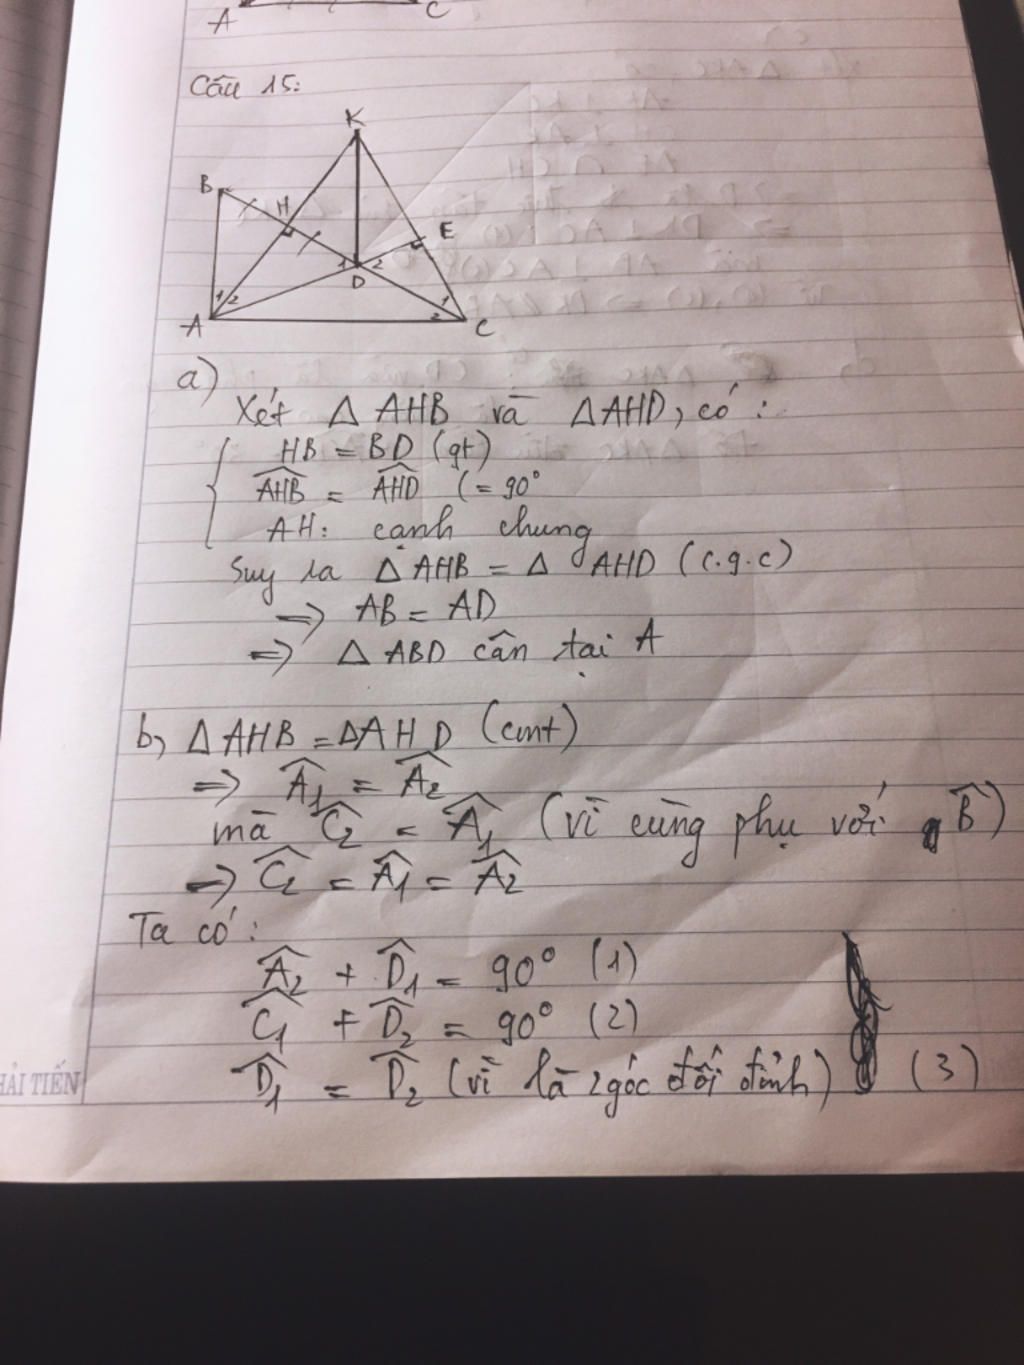 A C
Câu 15:
K
B H E
1 2 D
1 2 1 2
A C
a)
Xét Δ AHB và ΔAHD, có:
HB = BD (gt)
AHB = AHD (= 90°
AH: cạnh chung
Suy ra Δ AHB = Δ AHD (c.g.c)
=> AB = AD
=> Δ ABD cân tại A
b, Δ AHB = ΔAHD (cmt)
=> Â₁ = Â₂
mà Ĉ₂ = Â₁ (vì cùng phụ với B̂)
=> Ĉ₂ = Â₁ = Â₂
Ta có:
Â₂ + D̂₁ = 90° (1)
Ĉ₁ + D̂₂ = 90° (2)
D̂₁ = D̂₂ (vì là 2 góc đối đỉnh) (3)
HẢI TIẾN